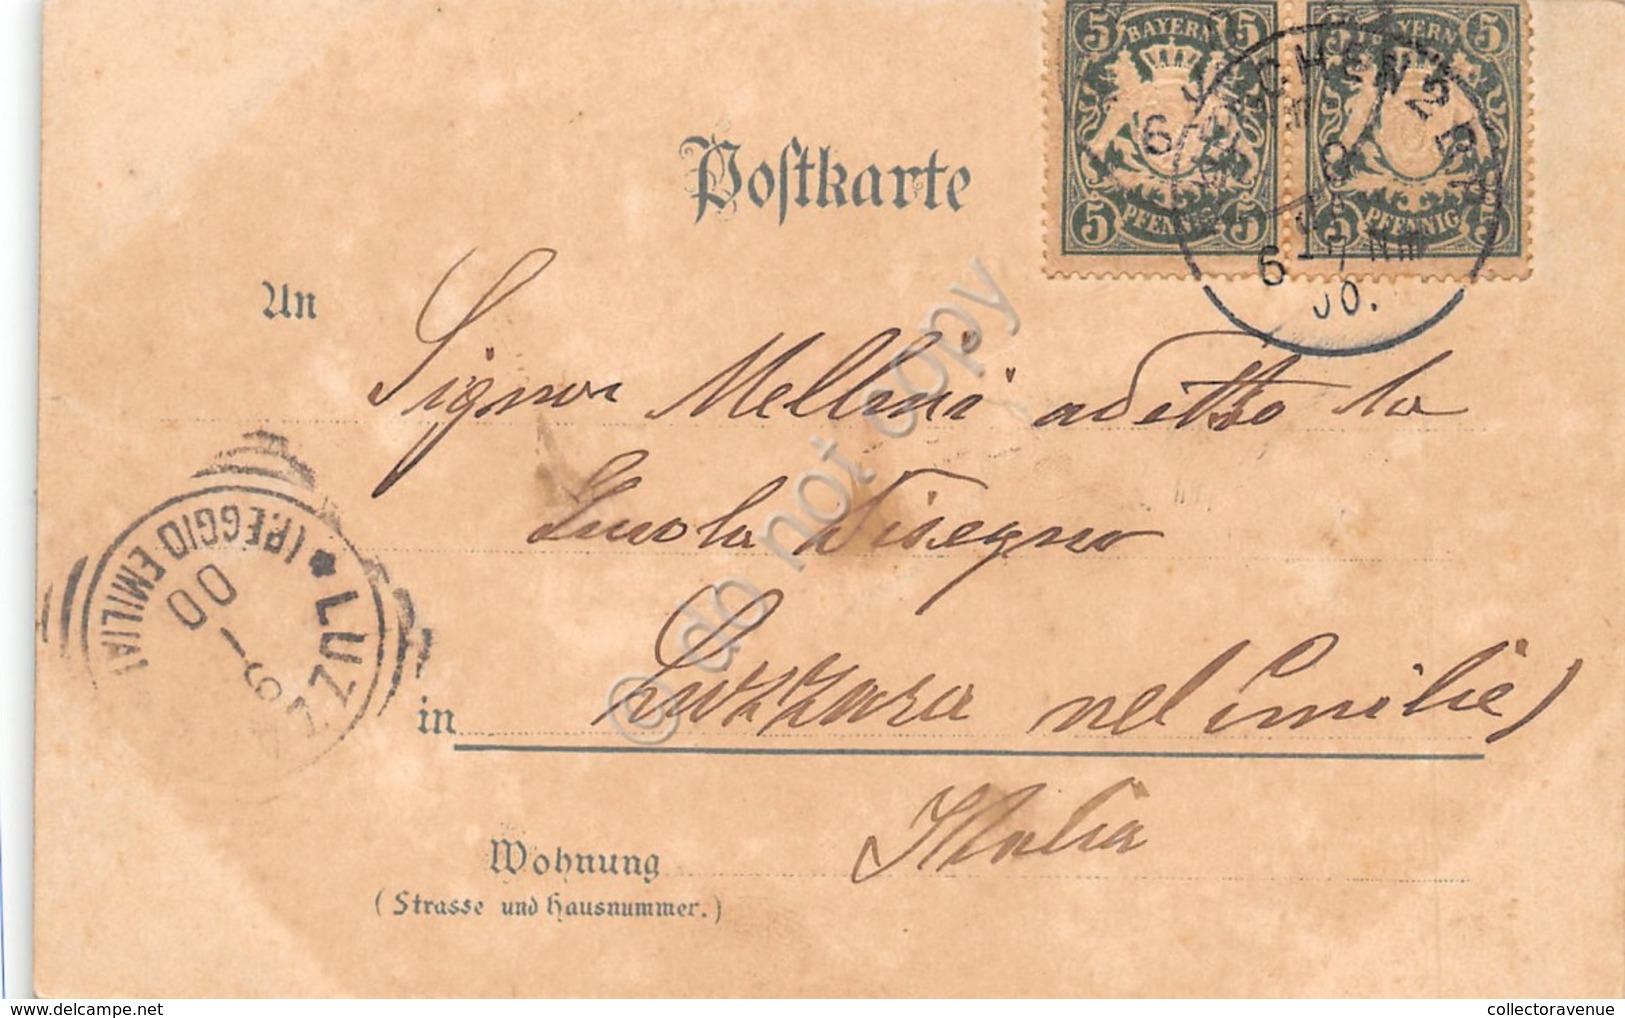 5 BAYERN 5 5 BAYERN 5
5 PFENNIG 5 5 PFENNIG 5
MÜNCHEN 2 B.P.
6-7 Nm
00.
Postkarte
An
Signor Mellini adetto la
Scuola Disegno
in Luzzara nel Emilie)
Italia
Wohnung
(Strasse und Hausnummer.)
LUZZARA
(REGGIO EMILIA)
00
© do not copy
www.delcampe.net
collectoravenue